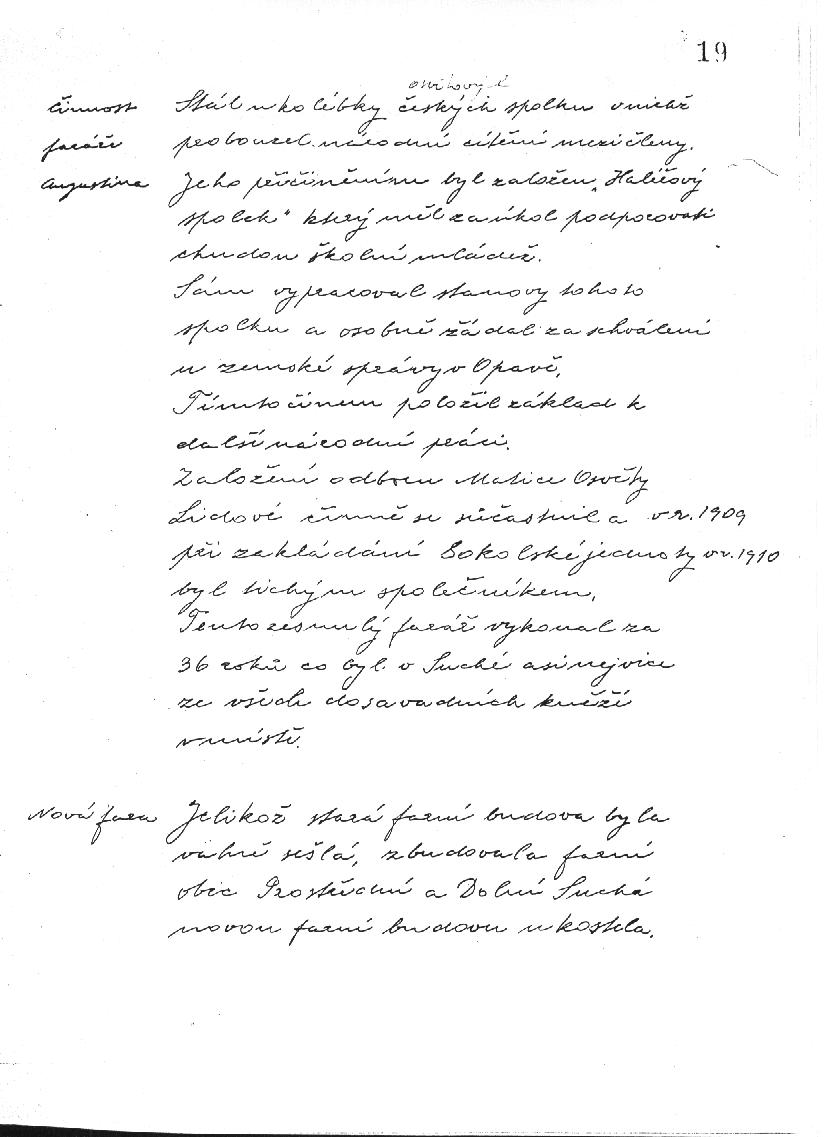 19
činnost
faráře
Augustina
Stál u kolébky českých spolku v nichž
probouzel národní cítění mezi členy.
Jeho přičiněním byl založen „Haléřový
spolek“ který měl za úkol podporovati
chudou školní mládež.
Sám vypracoval stanovy tohoto
spolku a osobně žádal za schválení
u zemské správy v Opavě.
Tímto činem položil základ k
další národní práci.
Založení odboru Matice Osvěty
Lidové činně se súčastnil a v r. 1909
při zakládání Sokolské jednoty v r. 1910
byl tichým společníkem.
Tento zesnulý farář vykonal za
36 roků co byl v Suché asi nejvice
ze všech dosavadních kněží
v místě.
Nová fara
Jelikož stará farní budova byla
valně sešlá, zbudovala farní
obec Prostřední a Dolní Suchá
novou farní budovu u kostela.